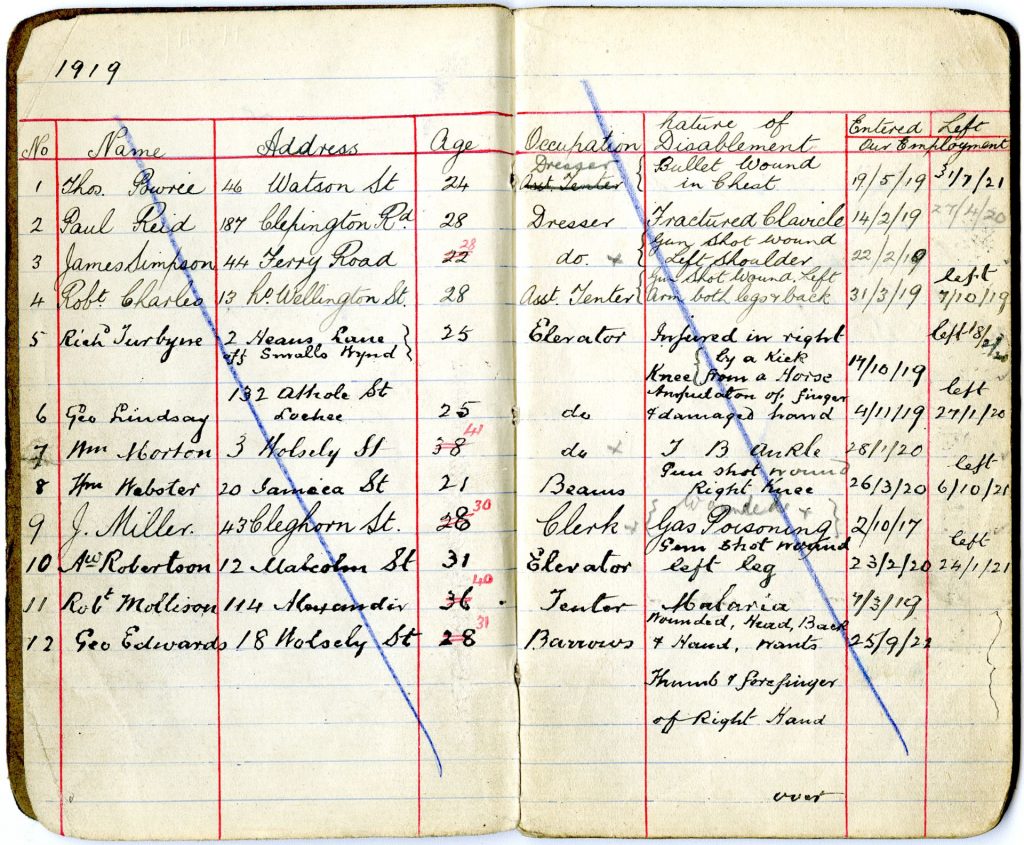 1919
No Name Address Age Occupation Nature of Disablement Entered Left
Our Employment
Dresser Bullet Wound
1 Thos. Powrie 46 Watson St 24 Asst. Tenter in Chest 19/5/19 31/7/21
2 Paul Reid 187 Clepington Rd. 28 Dresser Fractured Clavicle 14/2/19 27/4/20
28 Gun Shot Wound
3 James Simpson 44 Ferry Road 22 do x Left Shoulder 22/2/19
Gun Shot Wound, Left left
4 Robt. Charles 13 No. Wellington St. 28 Asst. Tenter Arm both legs & back 31/3/19 7/10/19
5 Richd Turbyne 2 Heans Lane 25 Elevator Injured in right left 18/2/20
off Smalls Wynd by a Kick
Knee from a Horse 14/10/19
132 Athole St Amputation of finger left
6 Geo Lindsay Lochee 25 do & damaged hand 4/11/19 27/1/20
41
7 Wm Morton 3 Wolsely St 38 do x T B Ankle 28/1/20
Gun shot wound left
8 Wm Webster 20 Jamaica St 21 Beams Right Knee 26/3/20 6/10/21
30 Wounded x
9 J. Miller. 43 Cleghorn St. 28 Clerk x Gas Poisoning 2/10/17
Gun Shot Wound left
10 Aw Robertson 12 Malcolm St 31 Elevator left leg 23/2/20 24/1/21
40
11 Robt Mollison 114 Alexander 36 Tenter Malaria 7/3/19
31 Wounded, Head, Back
12 Geo Edwards 18 Wolsely St 28 Barrows & Hand, wants 25/9/22
Thumb & forefinger
of Right Hand
over